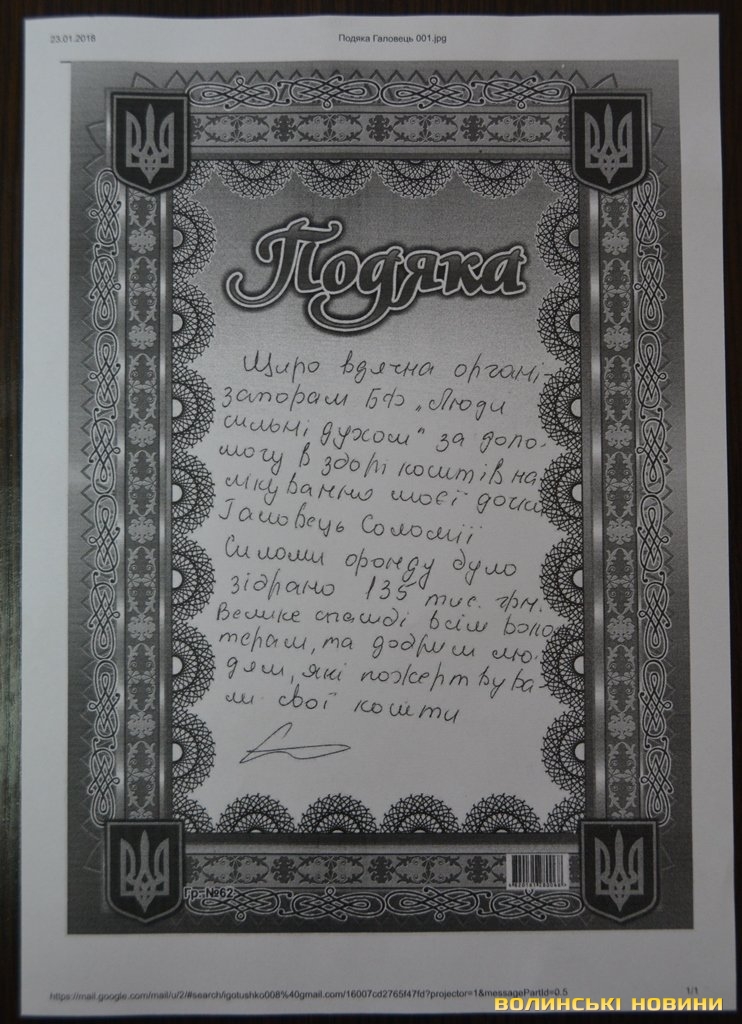 23.01.2018 Подяка Галовець 001.jpg
Подяка
Щиро вдячна органі-
заторам БФ „Люди
сильні духом" за допо-
могу в зборі коштів на
лікування моєї дочки
Галовець Соломії
Силами фонду було
зібрано 135 тис. грн.
Велике спасибі всім воло
терам, та добрим лю-
дям, які пожертвува-
ли свої кошти
Гр. №62
https://mail.google.com/mail/u/2/#search/igotushko008%40gmail.com/16007cd2765f47fd?projector=1&messagePartId=0.5 1/1
ВОЛИНСЬКІ НОВИНИ